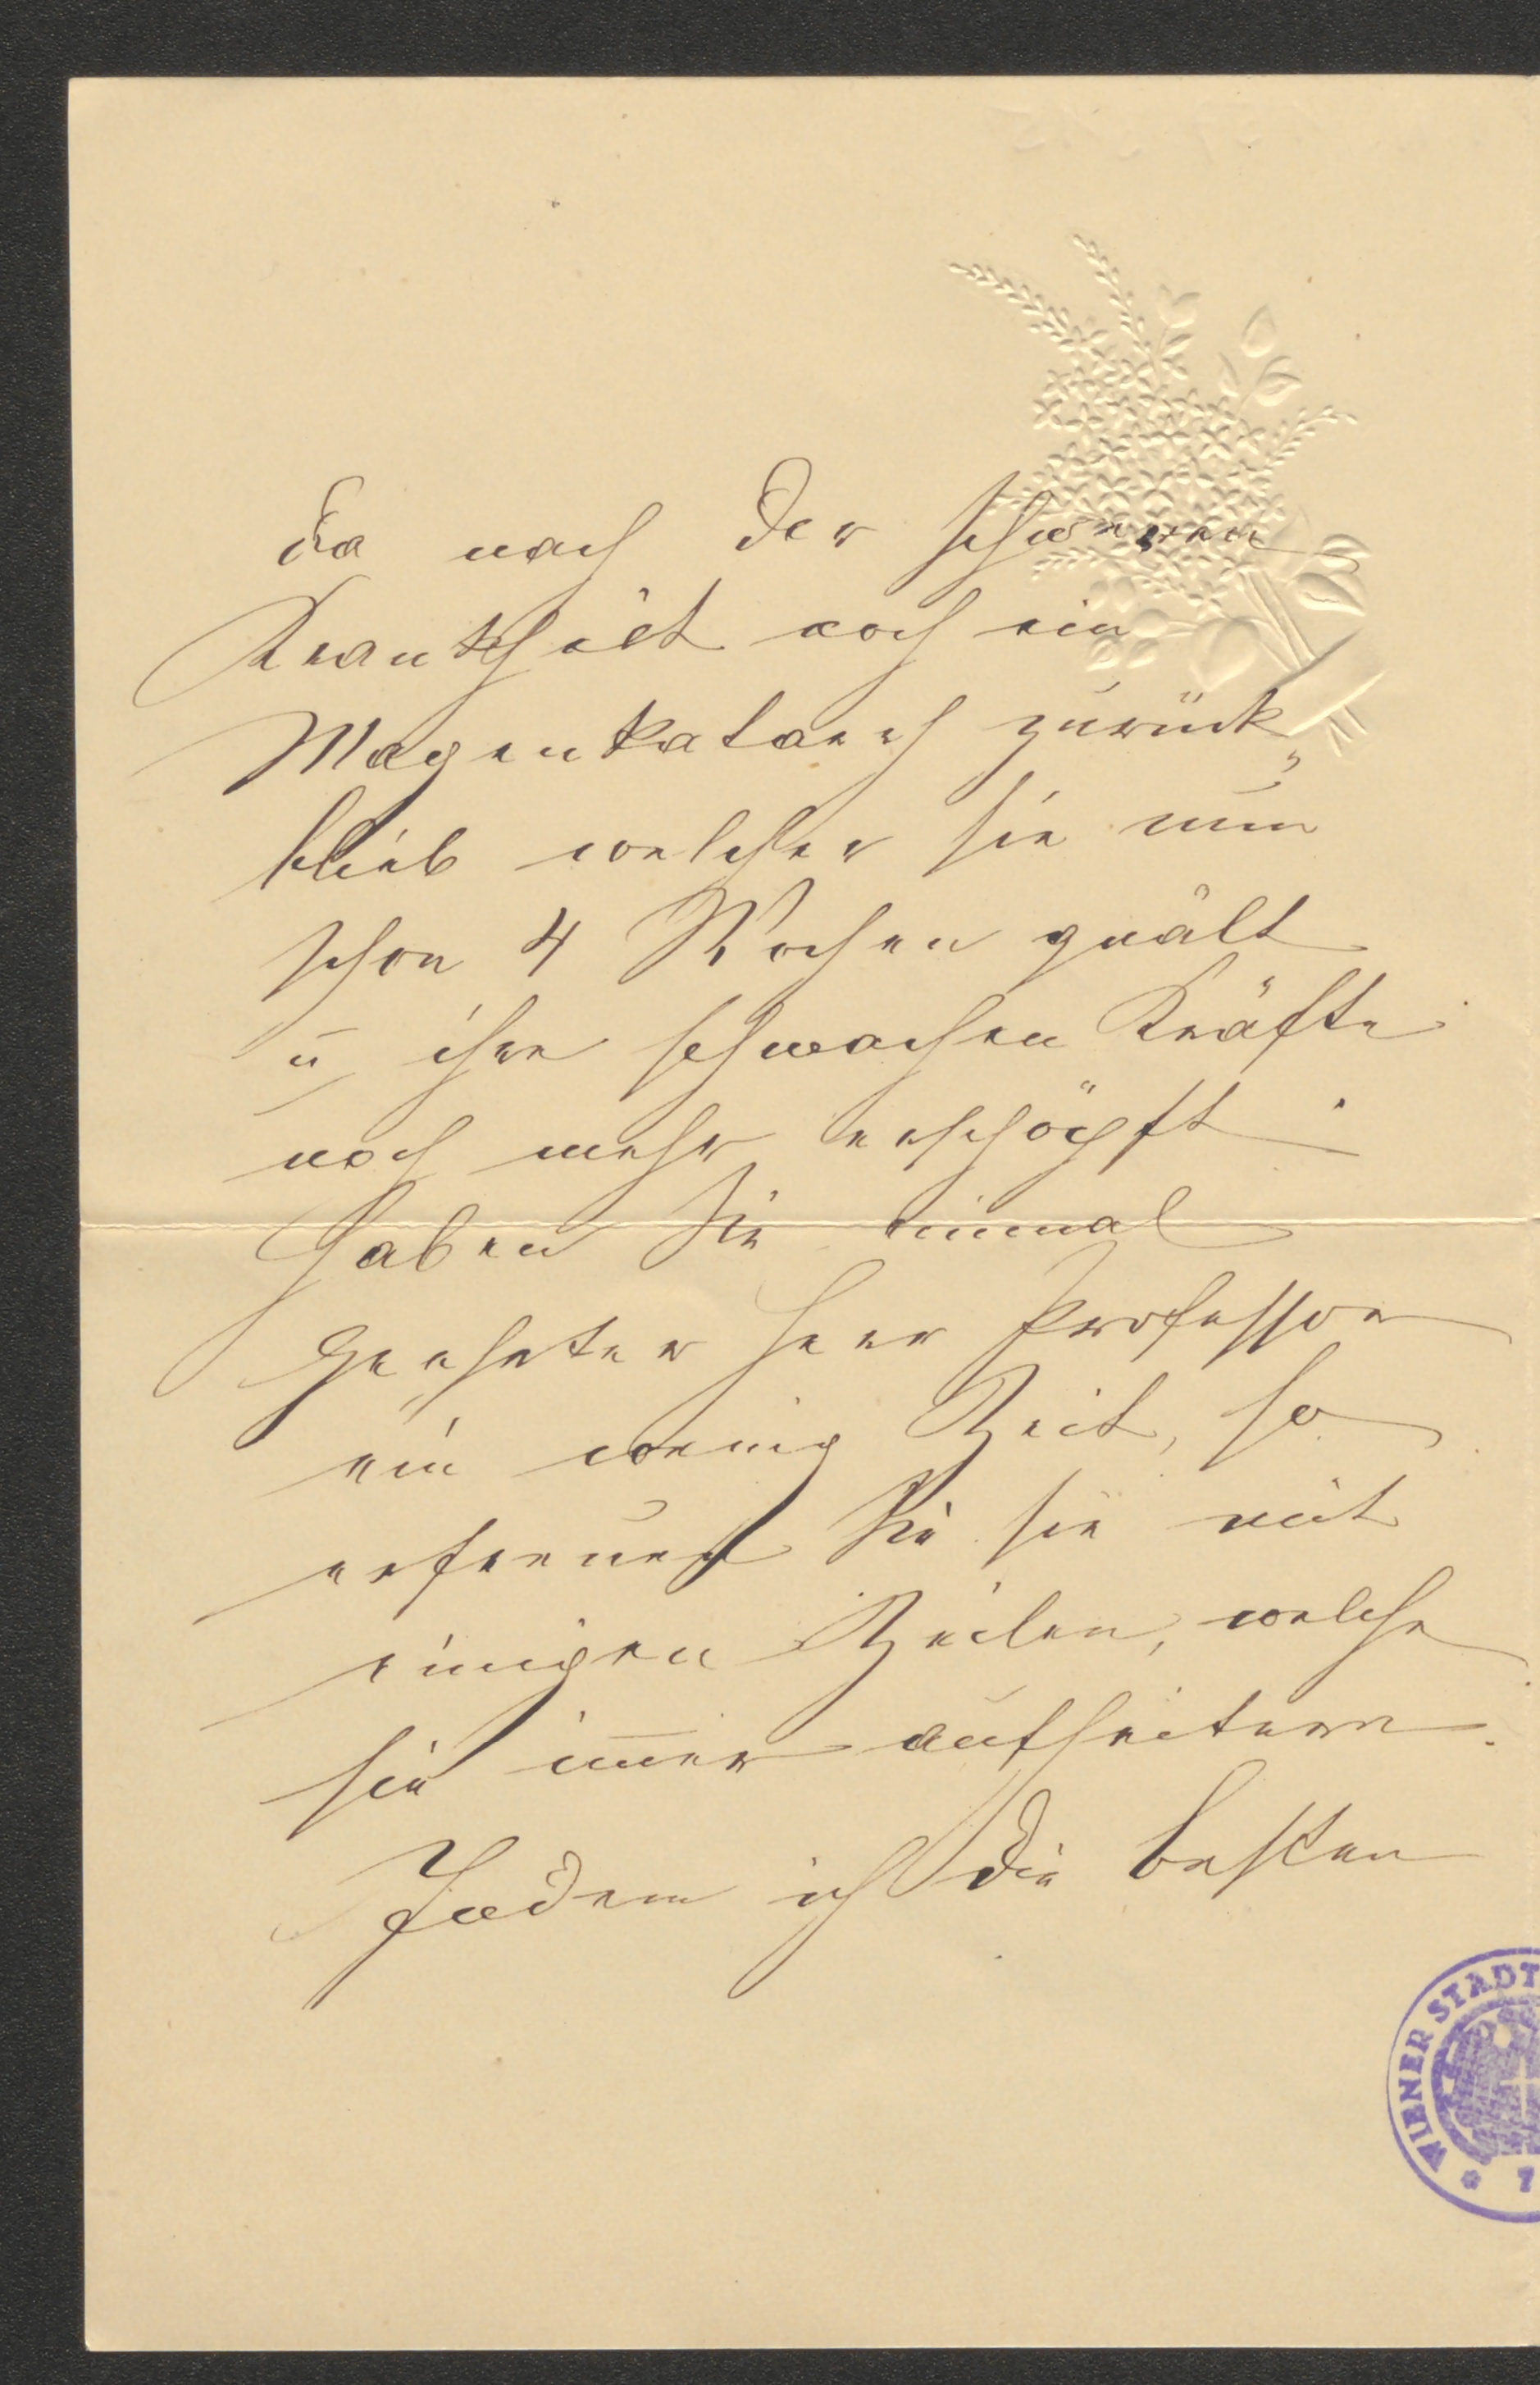 da nach der schweren
Krankheit noch ein
Magenkatarrh zurück„
blieb welcher sie nun
schon 4 Wochen quält
u ihre schwachen Kräfte
noch mehr erschöpft.
Haben Sie einmal
geehrter Herr Professor
ein wenig Zeit, so
erfreuen Sie sie mit
einigen Zeilen, welche
sie im̄er aufheitern.
Indem ich die besten
WIENER STADT
7